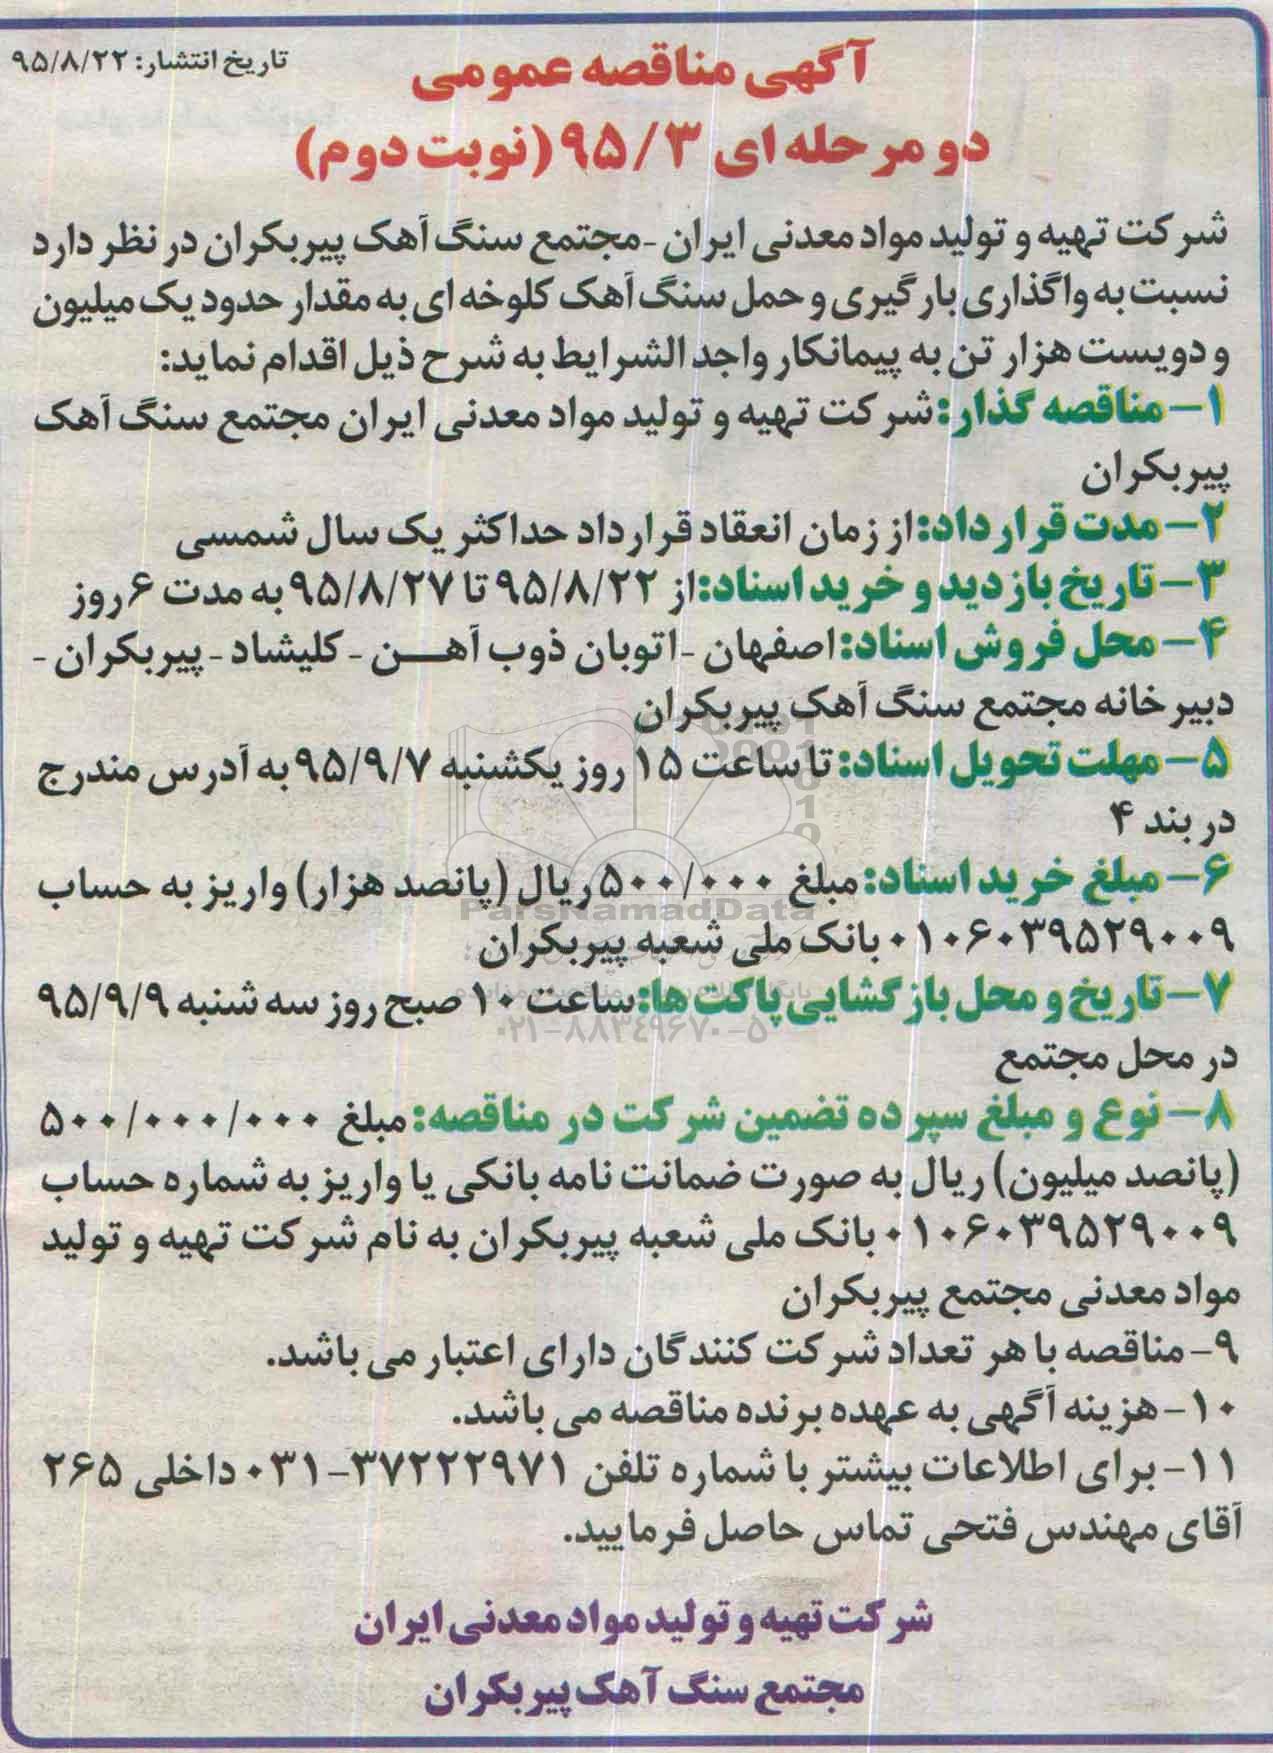 تاریخ انتشار: ۹۵/۸/۲۲
آگهی مناقصه عمومی
دو مرحله ای ۹۵/۳ (نوبت دوم)
شرکت تهیه و تولید مواد معدنی ایران -مجتمع سنگ آهک پیربکران در نظر دارد
نسبت به واگذاری بارگیری و حمل سنگ آهک کلوخه ای به مقدار حدود یک میلیون
و دویست هزار تن به پیمانکار واجد الشرایط به شرح ذیل اقدام نماید:
۱- مناقصه گذار: شرکت تهیه و تولید مواد معدنی ایران مجتمع سنگ آهک
پیربکران
۲- مدت قرارداد: از زمان انعقاد قرارداد حداکثر یک سال شمسی
۳- تاریخ بازدید و خرید اسناد: از ۹۵/۸/۲۲ تا ۹۵/۸/۲۷ به مدت ۶ روز
۴- محل فروش اسناد: اصفهان -اتوبان ذوب آهن - کلیشاد - پیربکران -
دبیرخانه مجتمع سنگ آهک پیربکران
۵- مهلت تحویل اسناد: تا ساعت ۱۵ روز یکشنبه ۹۵/۹/۷ به آدرس مندرج
در بند ۴
۶- مبلغ خرید اسناد: مبلغ ۵۰۰/۰۰۰ ریال (پانصد هزار) واریز به حساب
۰۱۰۶۰۳۹۵۲۹۰۰۹ بانک ملی شعبه پیربکران
۷- تاریخ و محل بازگشایی پاکت ها: ساعت ۱۰ صبح روز سه شنبه ۹۵/۹/۹
در محل مجتمع
۸- نوع و مبلغ سپرده تضمین شرکت در مناقصه: مبلغ ۵۰۰/۰۰۰/۰۰۰
(پانصد میلیون) ریال به صورت ضمانت نامه بانکی یا واریز به شماره حساب
۰۱۰۶۰۳۹۵۲۹۰۰۹ بانک ملی شعبه پیربکران به نام شرکت تهیه و تولید
مواد معدنی مجتمع پیربکران
۹- مناقصه با هر تعداد شرکت کنندگان دارای اعتبار می باشد.
۱۰- هزینه آگهی به عهده برنده مناقصه می باشد.
۱۱- برای اطلاعات بیشتر با شماره تلفن ۳۷۲۲۲۹۷۱-۰۳۱ داخلی ۲۶۵
آقای مهندس فتحی تماس حاصل فرمایید.
شرکت تهیه و تولید مواد معدنی ایران
مجتمع سنگ آهک پیربکران
ParsNamadData
۰۲۱-۸۸۳۴۹۶۷۰-۵